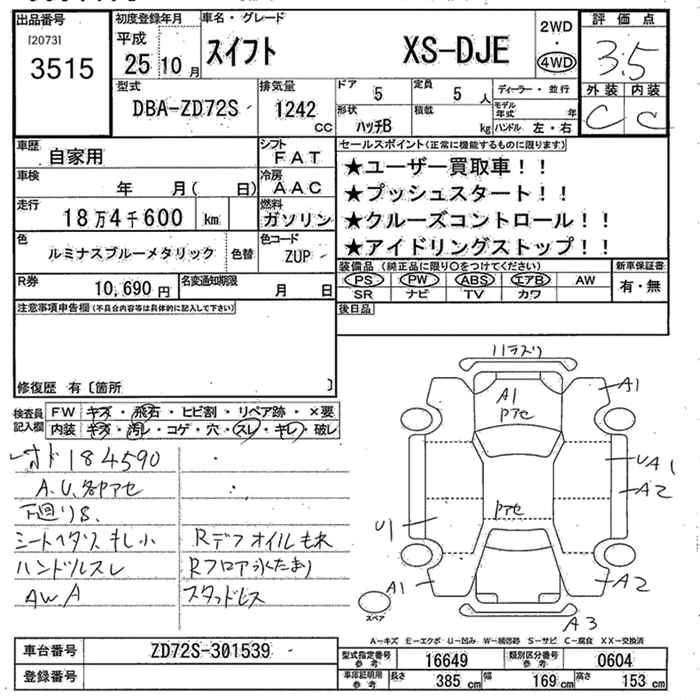 出品番号
[2073]
3515
初度登録年月
平成
25 10 月
車名・グレード
スイフト XS-DJE
2WD
・
4WD
評価点
3.5
外装 内装
C C
型式
DBA-ZD72S
排気量
1242
cc
ドア 5
定員 5 人
形状
ハッチB
積載
kg
ディーラー・並行
モデル年式 年
ハンドル 左・右
車歴
自家用
シフト
FAT
車検
年 月( 日)
冷房
AAC
走行
18万4千600 km
燃料
ガソリン
色
ルミナスブルーメタリック
色替
色コード
ZUP
R券
10,690 円
名変通知期限
月 日
セールスポイント(正常に機能するものに限ります)
★ユーザー買取車!!
★プッシュスタート!!
★クルーズコントロール!!
★アイドリングストップ!!
装備品(純正品に限り○をつけてください)
PS PW ABS エアB AW
SR ナビ TV カワ
新車保証書
有・無
注意事項申告欄(不具合内容等は具体的に記入して下さい)
後日品
修復歴 有〔箇所 〕
検査員
記入欄
FW キズ・飛石・ヒビ割・リペア跡・×要
内装 キズ・汚レ・コゲ・穴・スレ・キレ・破レ
184590
A.U.各アセ
下回りS.
シートヘタリス キレ小
ハンドルスレ
AWA
Rデフオイルもれ
Rフロア水たまり
スタッドレス
A1
アセ
A1
U A1
A2
アセ
U1
A1
A2
A3
スペア
A-キズ E-エクボ U-凹ミ W-補修跡 S-サビ C-腐食 XX-交換済
車台番号
ZD72S-301539
登録番号
型式指定番号
参考
16649
類別区分番号
参考
0604
車庫証明用
参考
長さ 385 cm
幅 169 cm
高さ 153 cm